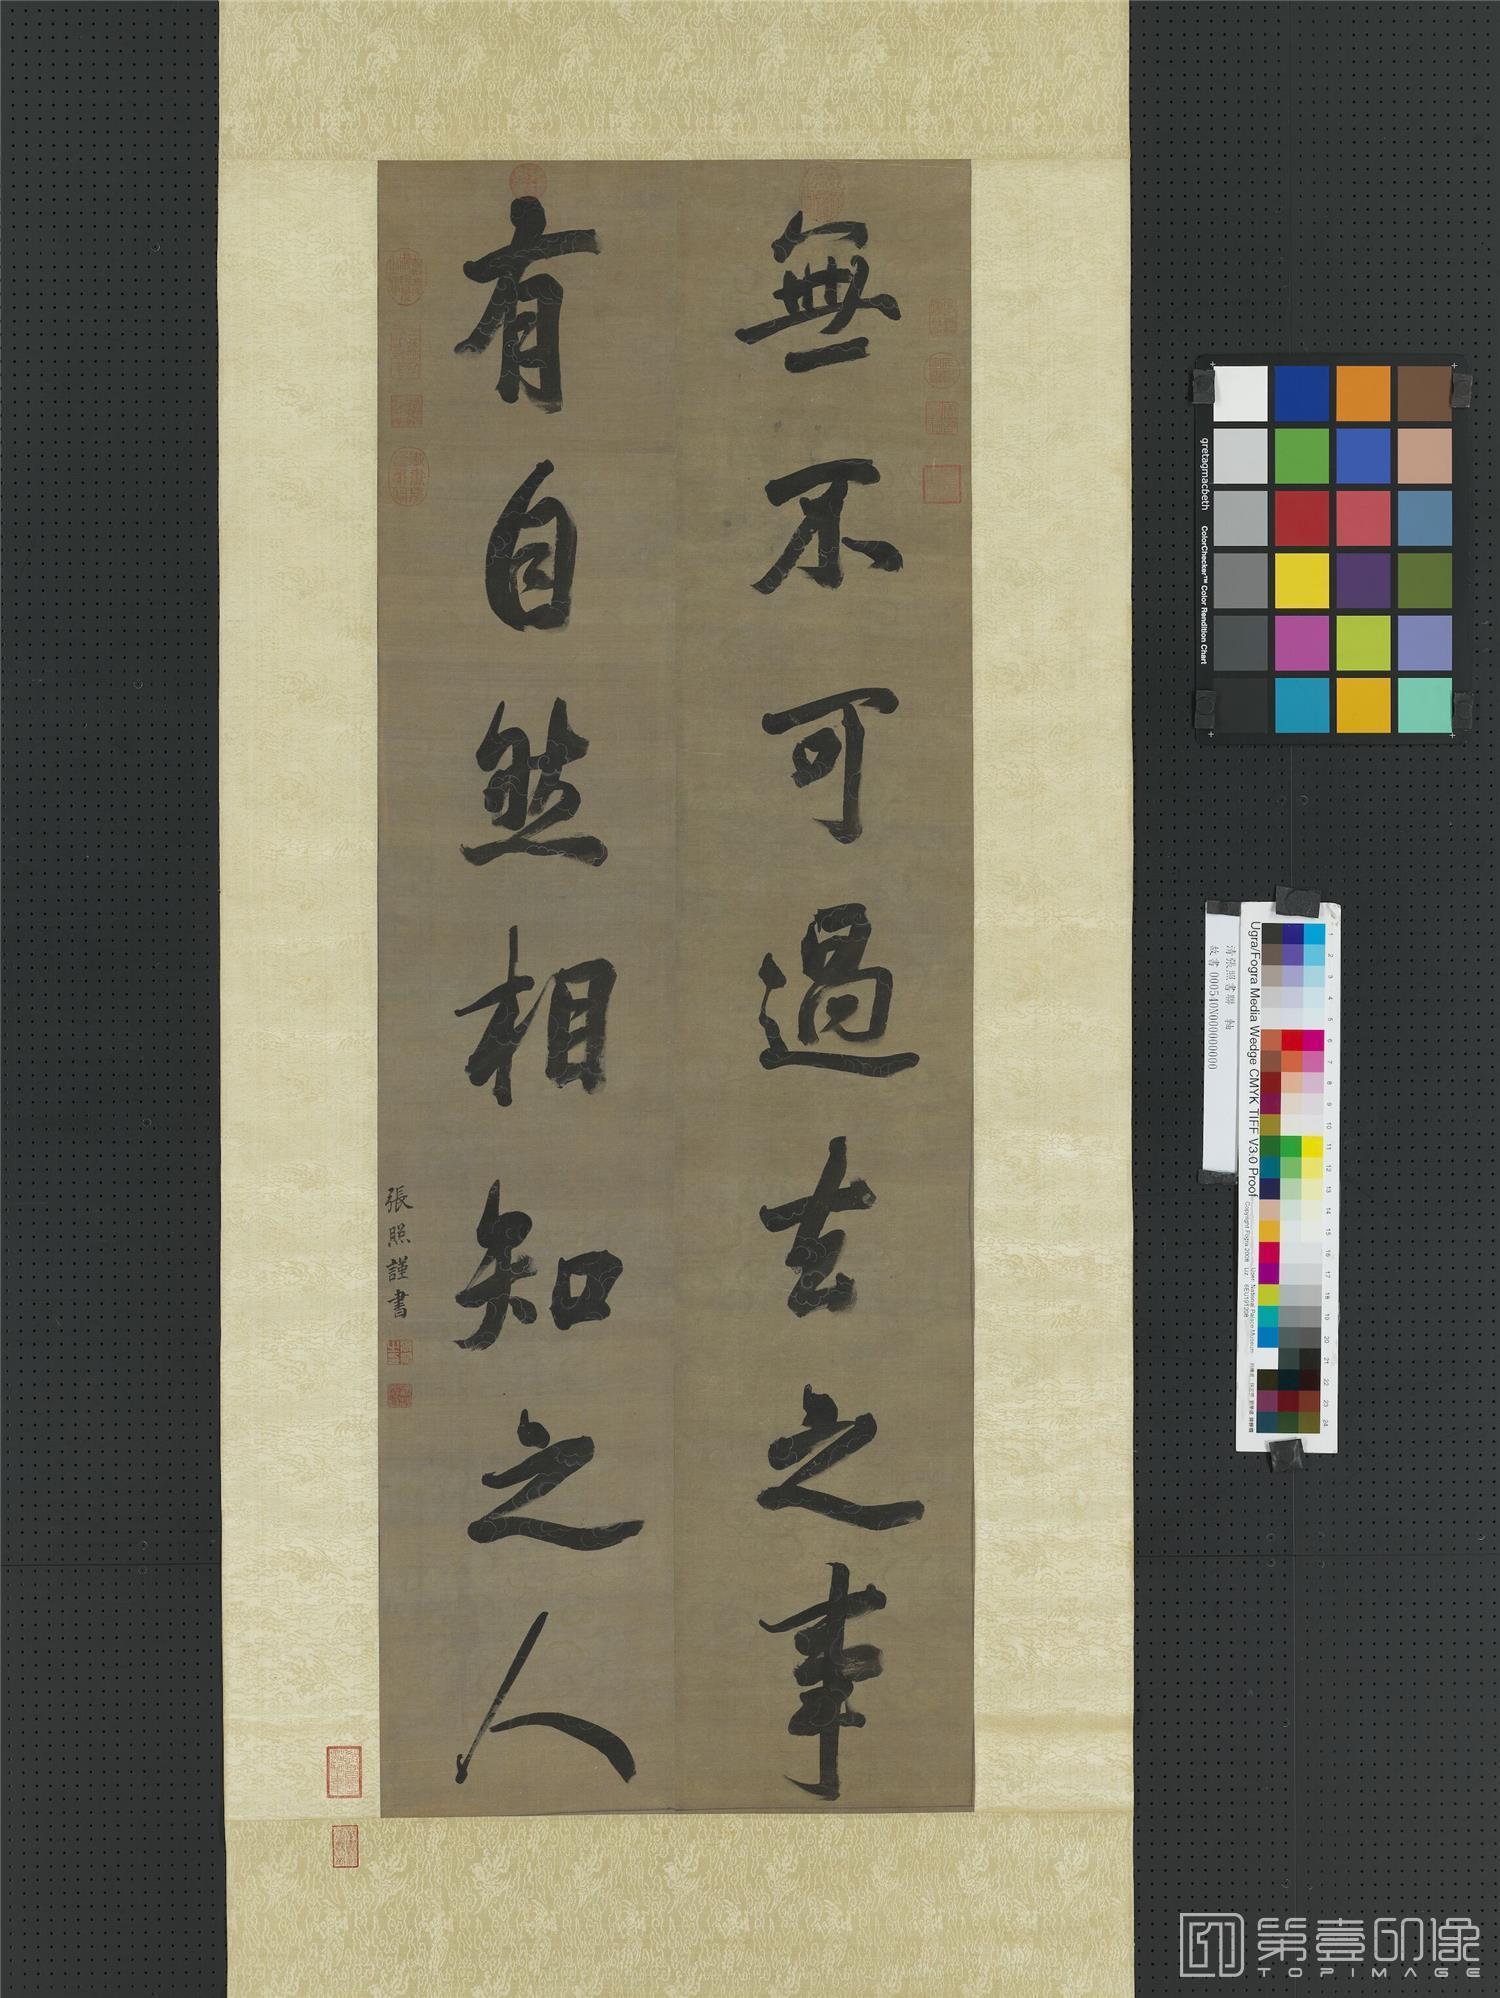 無不可過去之事
有自然相知之人
張照謹書
gretagmacbeth
ColorChecker™ Color Rendition Chart
清張照書聯 軸
故書000540N000000000
Ugra/Fogra Media Wedge CMYK TIFF V3.0 Proof
Copyright Fogra 2008
User: National Palace Museum
1 2 3 4 5 6 7 8 9 10 11 12 13 14 15 16 17 18 19 20 21 22 23 24
第壹印像
TOPIMAGE